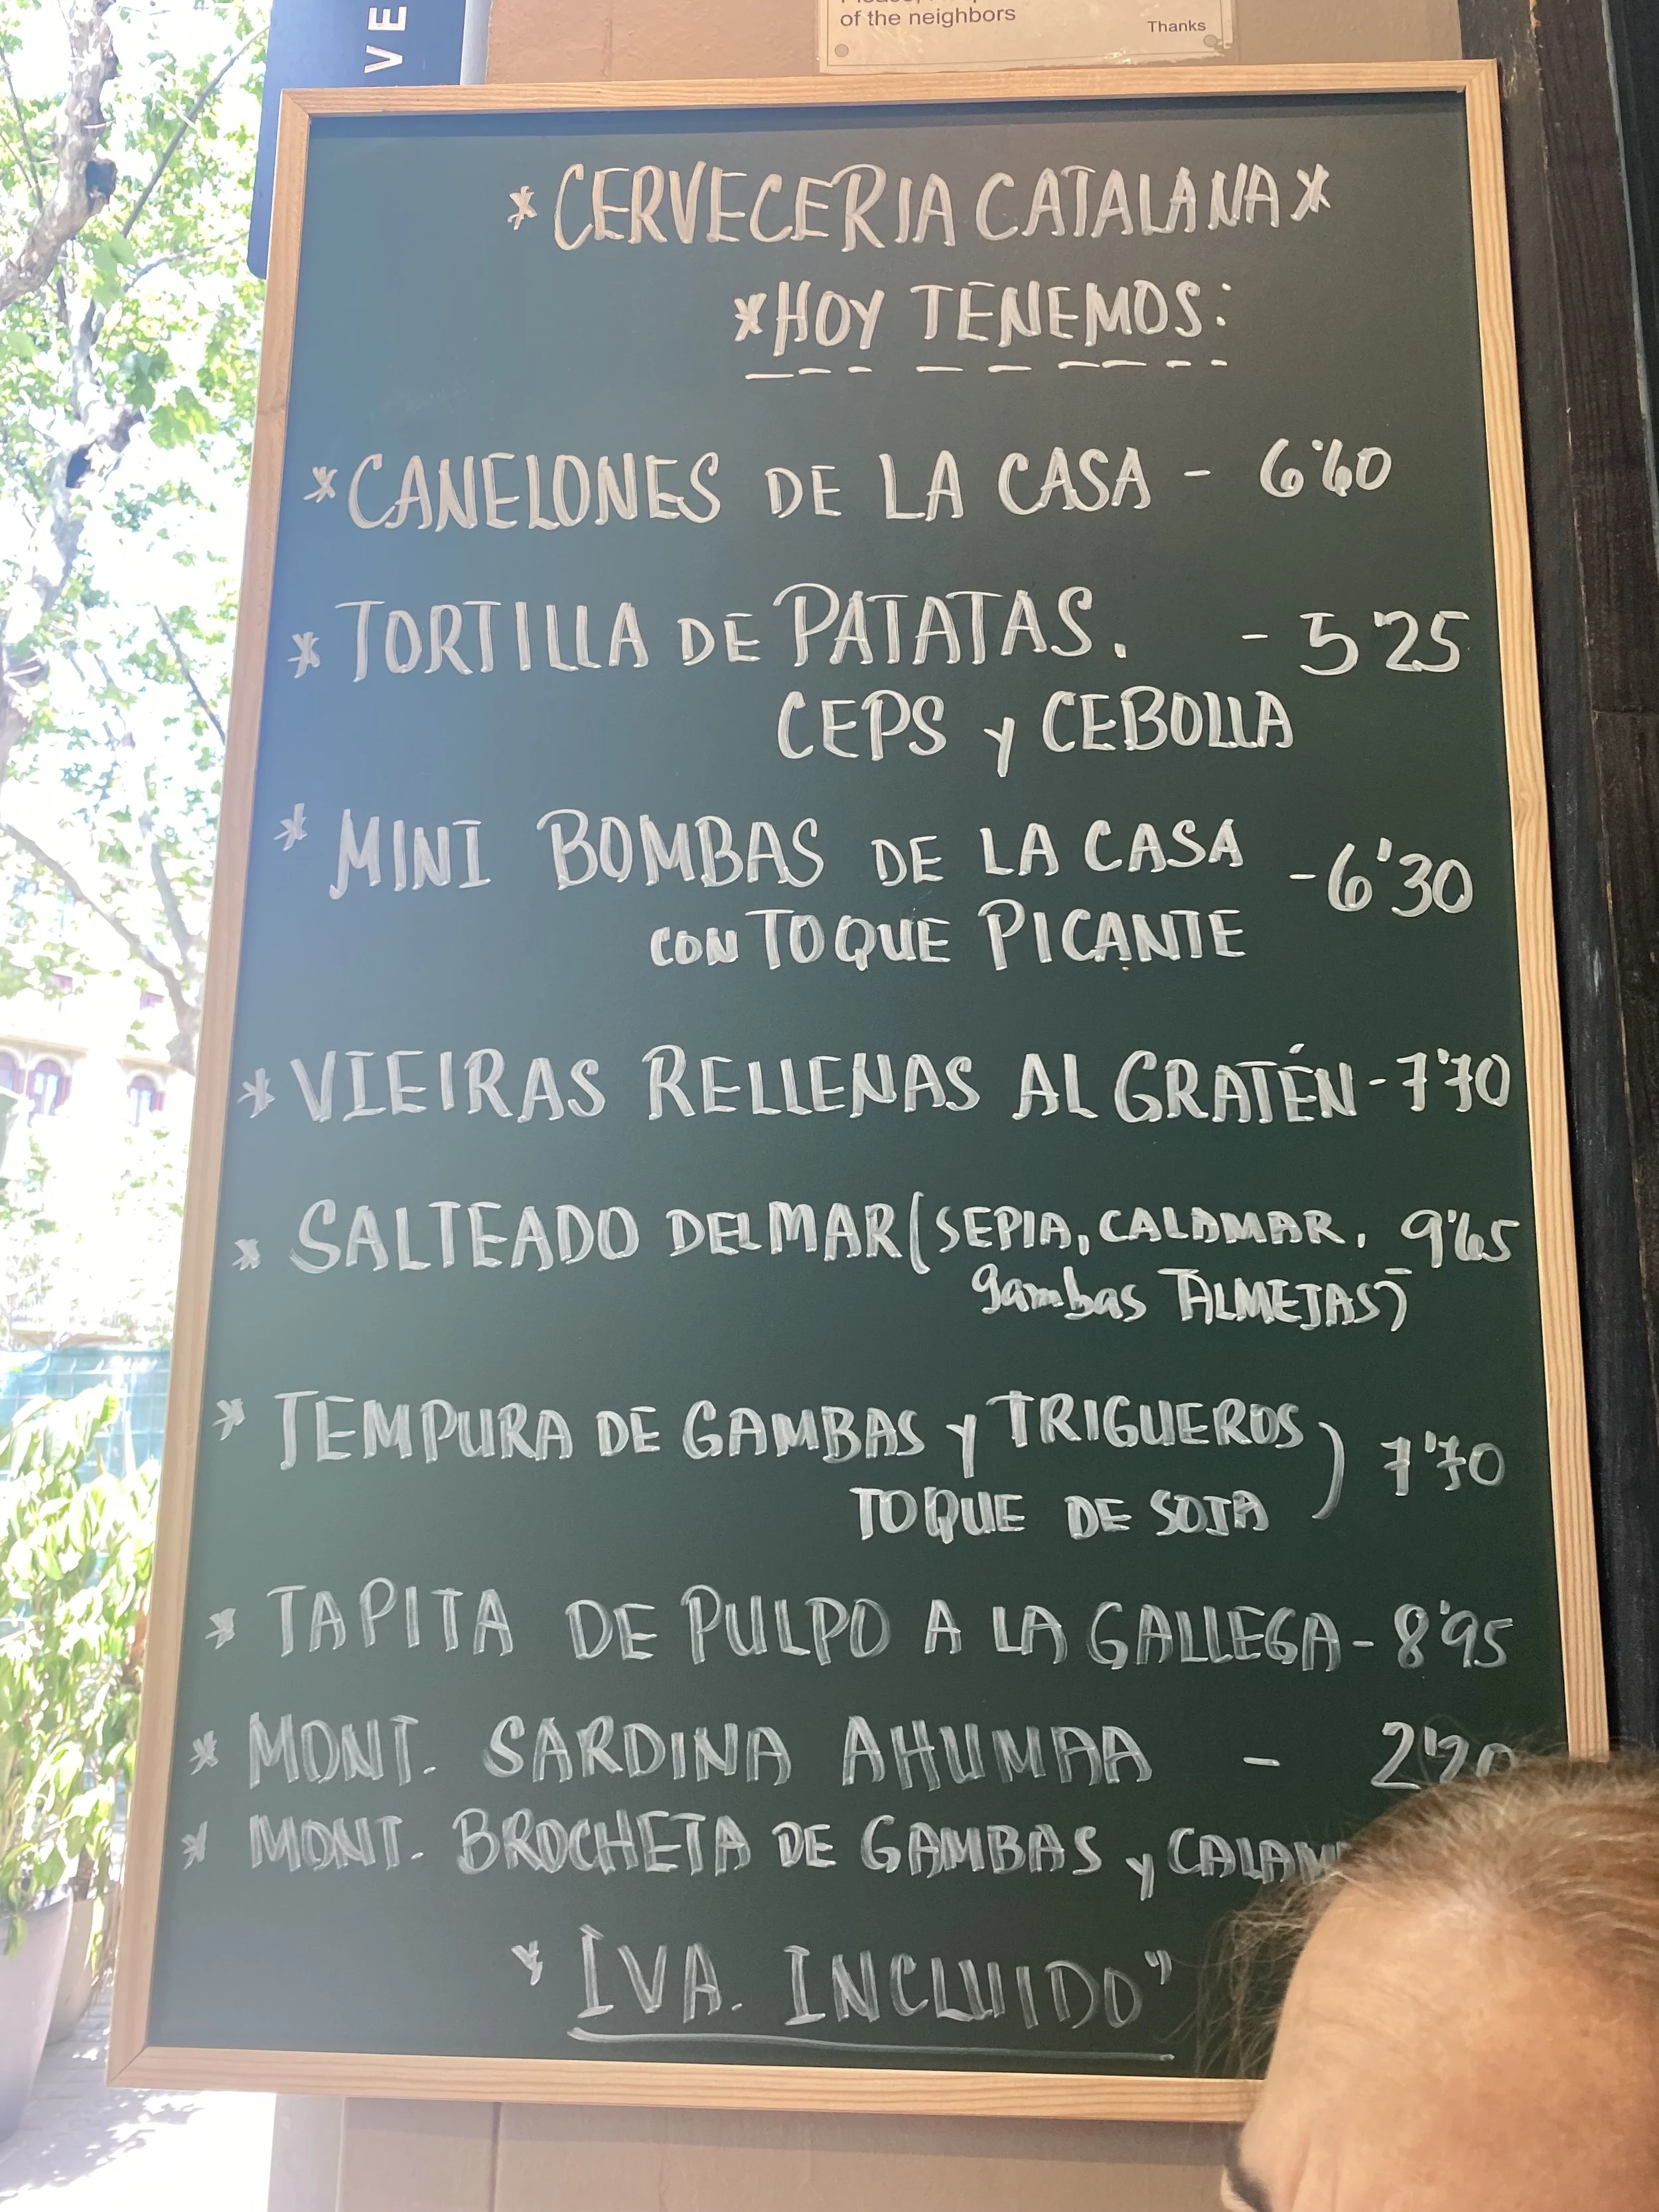 VE
of the neighbors
Thanks
*CERVECERIA CATALANA*
*HOY TENEMOS:
*CANELONES DE LA CASA - 6'60
*TORTILLA DE PATATAS. - 5'25
CEPS y CEBOLLA
*MINI BOMBAS DE LA CASA - 6'30
CON TOQUE PICANTE
*VIEIRAS RELLENAS AL GRATÉN - 7'70
*SALTEADO DEL MAR (SEPIA, CALAMAR, 9'65
gambas ALMEJAS)
*TEMPURA DE GAMBAS y TRIGUEROS ) 7'70
TOQUE DE SOJA
*TAPITA DE PULPO A LA GALLEGA - 8'95
*MONT. SARDINA AHUMAA - 2'20
*MONT. BROCHETA DE GAMBAS y
"IVA. INCLUIDO"